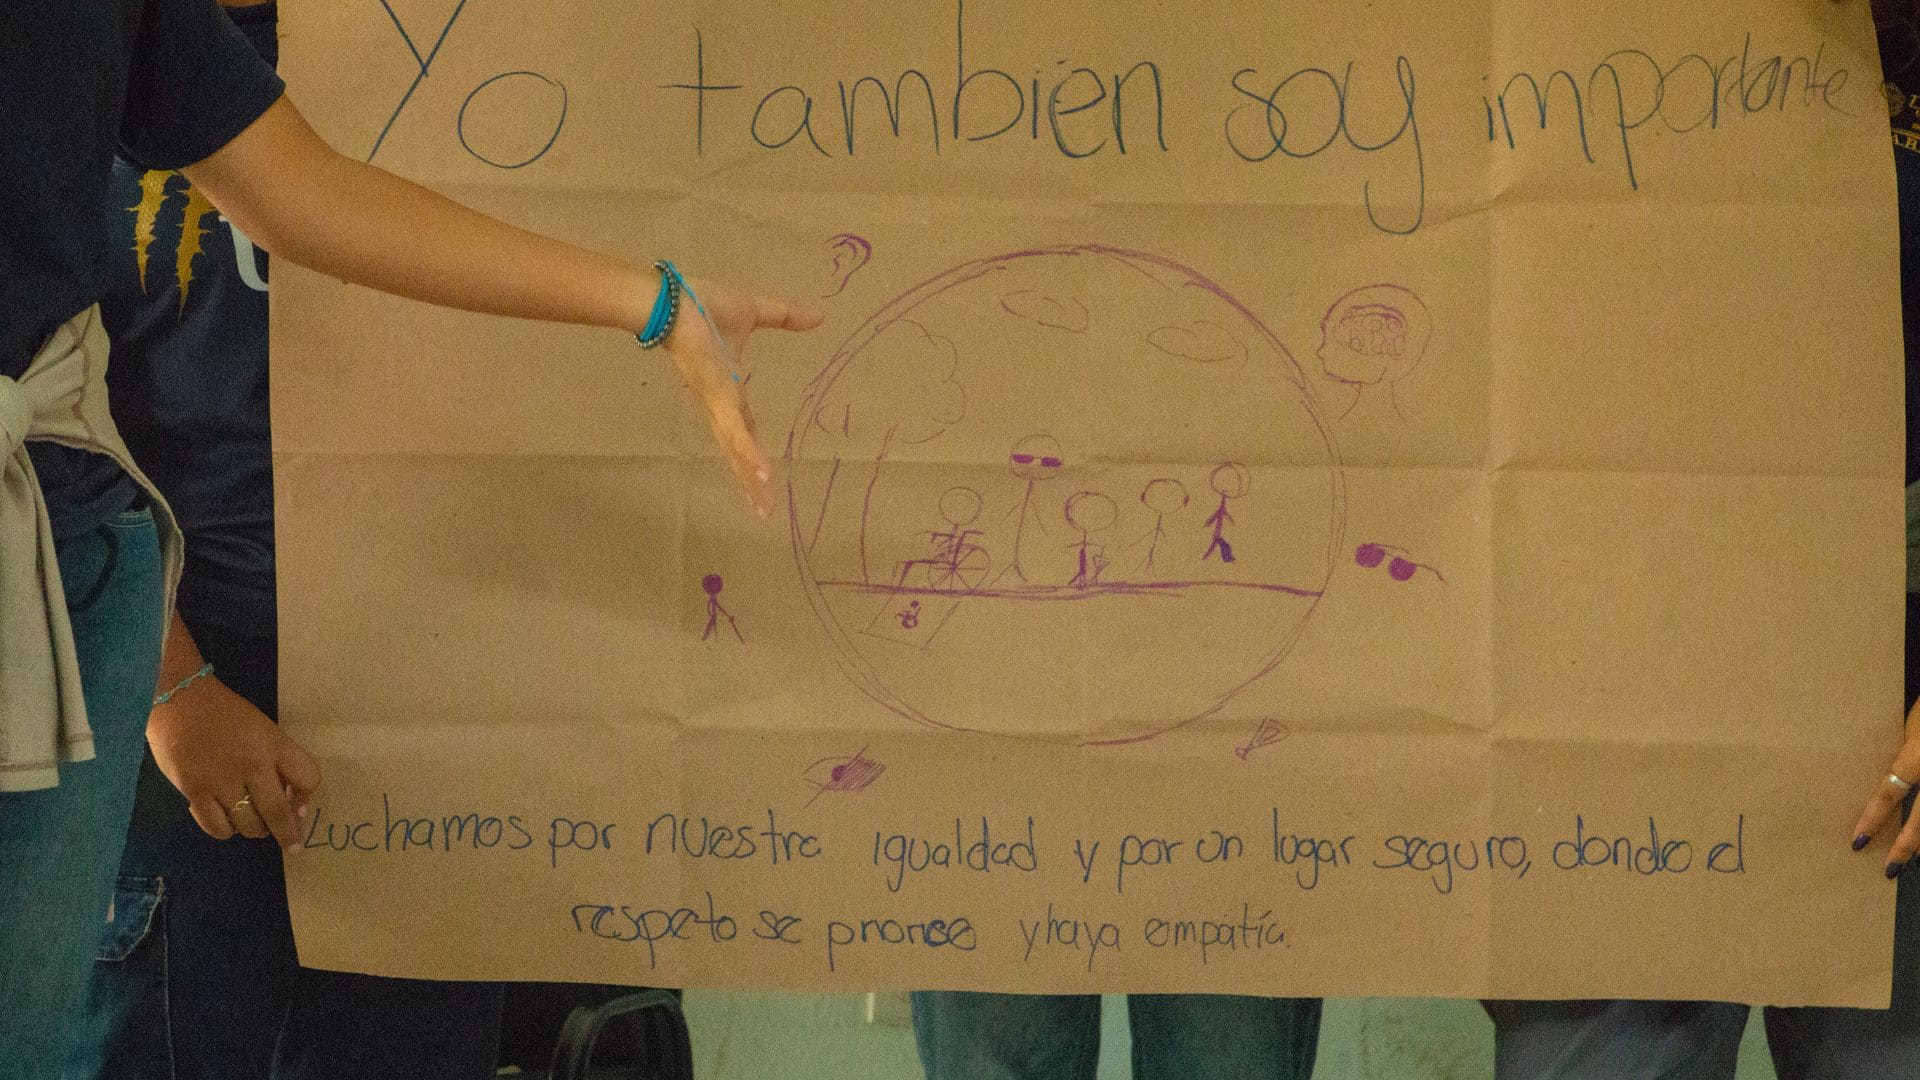 Yo también soy importante
Luchamos por nuestra igualdad y por un lugar seguro, donde el
respeto se y haya empatía.